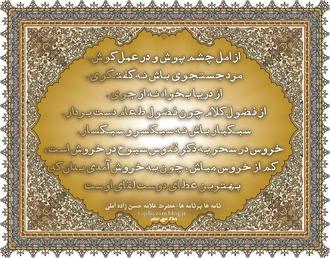 از امل چشم پوش و در عمل کوش
مرد جستجوی باش نه گفتگوی
از دریا بخواه نه از جوی
از فضول کلام چون فضول طعام دست بردار
سبکبار باش نه سبکسر و سبکسار
خروس در سحر به ذکر قدوس سبوح در خروش است
کم از خروس مباش، چون به خروش آمدی بدان که
بهترین عطای دوست لقای اوست
نامه ها برنامه ها - حضرت علامه حسن زاده آملی